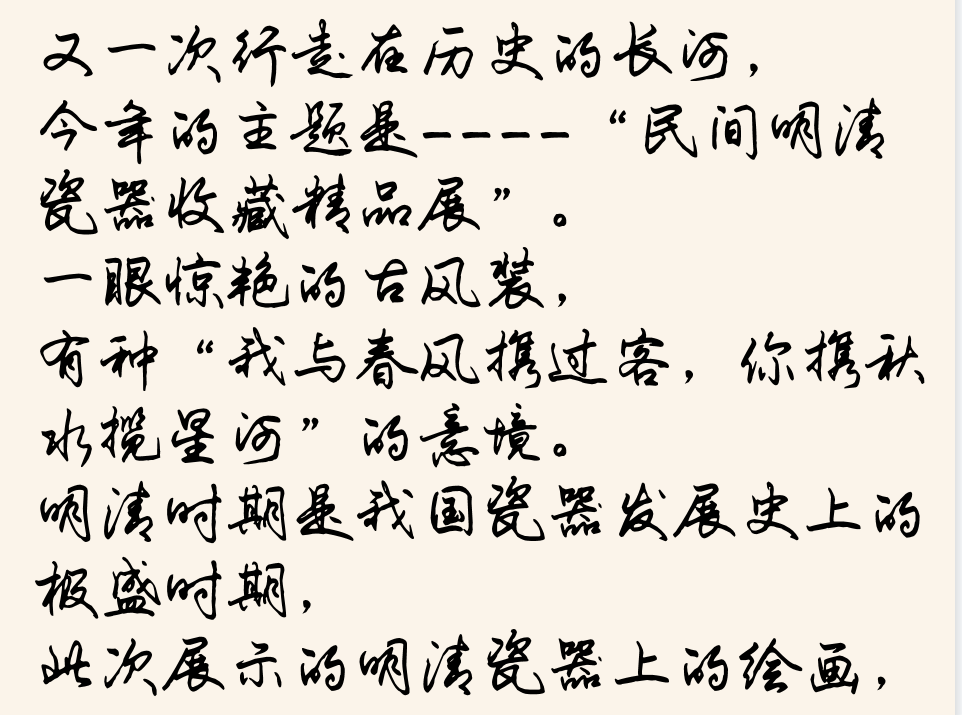 又一次行走在历史的长河，
今年的主题是----“民间明清
瓷器收藏精品展”。
一眼惊艳的古风装，
有种“我与春风携过客，你携秋
水揽星河”的意境。
明清时期是我国瓷器发展史上的
极盛时期，
此次展示的明清瓷器上的绘画，